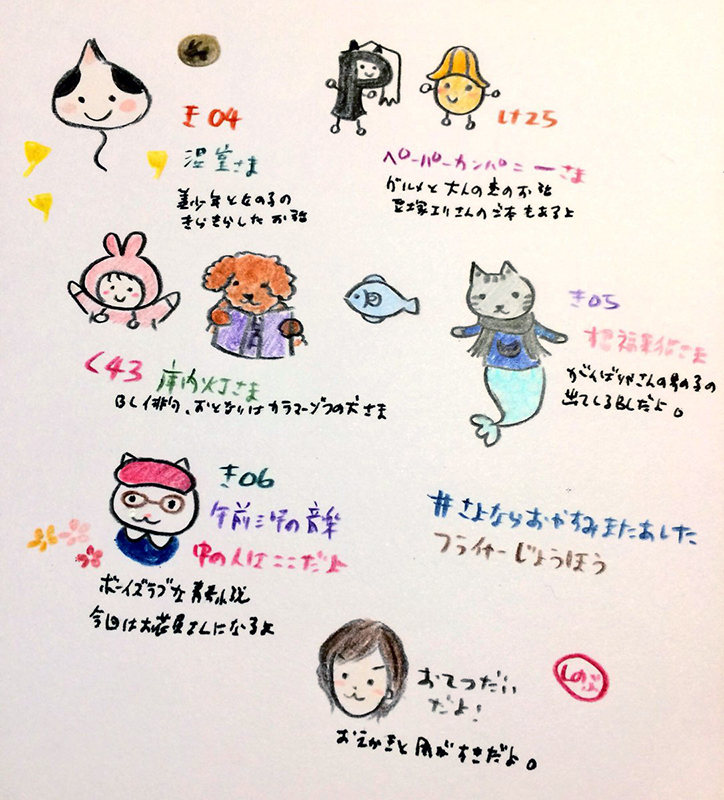 き04
温室さま
美少年と女の子の
きらきらしたお話
P
け25
ペーパーカンパニーさま
グルメと大人の恋のお話
豆塚エリさんのご本もあるよ
く43 庫内灯さま
BL俳句、おとなりはカラマーゾフの犬さま
き05
招福来袋さま
がんばりやさんの男の子の
出てくるBLだよ。
き06
午前三時の音楽
中の人はここだよ
ボーイズラブな青春小説
今回はお花屋さんになるよ
#さよならおやすみまたあした
フライヤーじょうほう
おてつだい
だよ!
おえかきと肉がすきだよ。
しのぶ